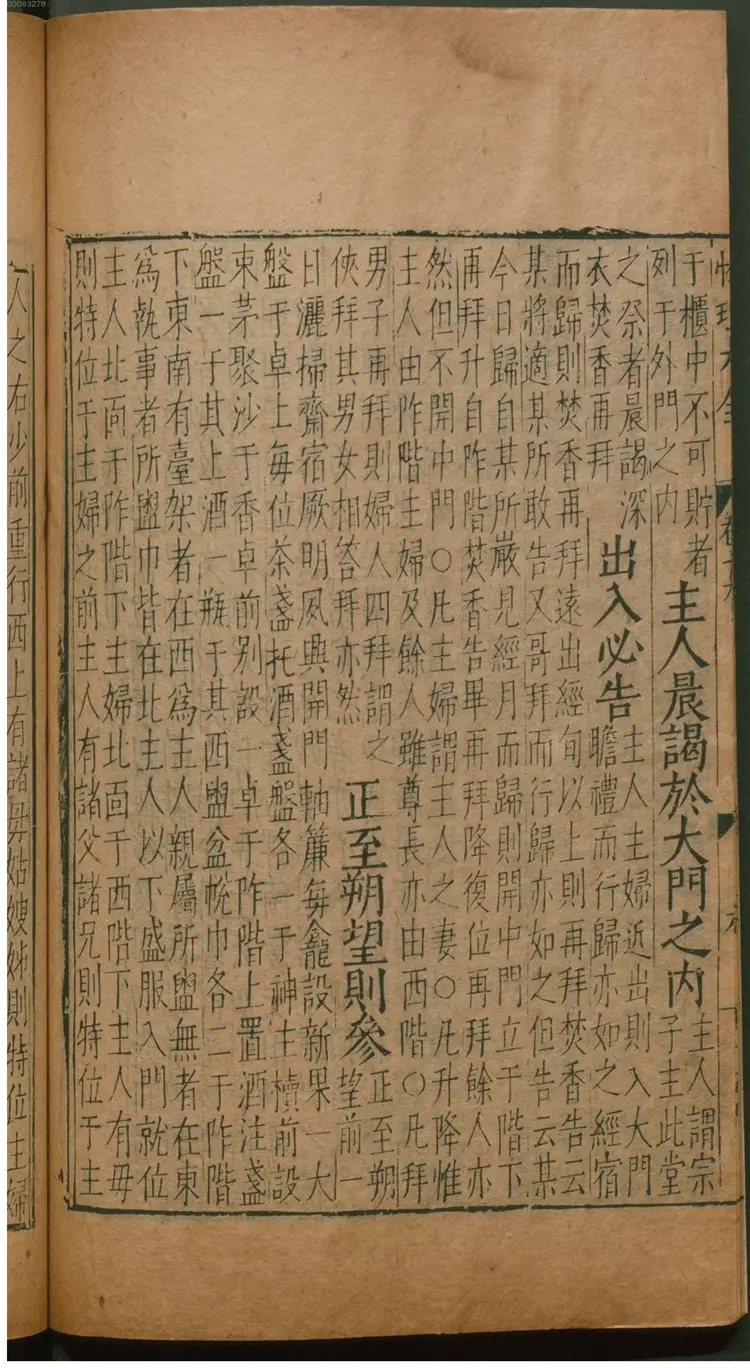 于櫃中不可貯者
列于外門之內
主人晨謁於大門之内
主人謂宗
子主此堂
之祭者晨謁深
衣焚香再拜
出入必告
主人主婦近出則入大門
瞻禮而行歸亦如之經宿
而歸則焚香再拜遠出經旬以上則再拜焚香告云
某將適某所敢告又哥拜而行歸亦如之但告云某
今日歸自某所嚴見經月而歸則開中門立于階下
再拜升自阼階焚香告畢再拜降復位再拜餘人亦
然但不開中門○凡主婦謂主人之妻○凡升降惟
主人由阼階主婦及餘人雖尊長亦由西階○凡拜
男子再拜則婦人四拜謂之
俠拜其男女相答拜亦然
正至朔望則參
正至朔
望前一
日灑掃齋宿厥明夙興開門軸簾每龕設新果一大
盤于卓上每位茶盞托酒盞盤各一于神主櫝前設
束茅聚沙于香卓前別設一卓于阼階上置酒注盞
盤一于其上酒一瓶于其西盥盆帨巾各二于阼階
下東南有臺架者在西為主人親屬所盥無者在東
為執事者所盥巾皆在北主人以下盛服入門就位
主人北面于阼階下主婦北面于西階下主人有母
則特位于主婦之前主人有諸父諸兄則特位于主
人之右少前重行西上有諸母姑嫂姊則特位主婦